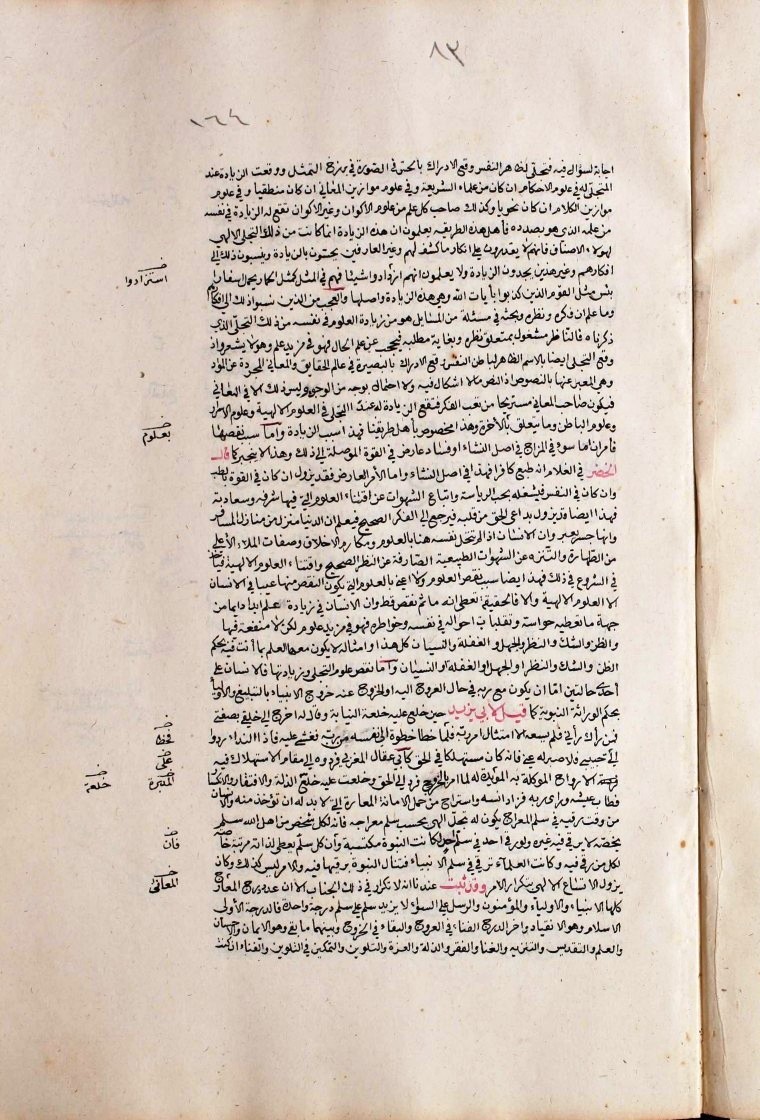 ٨٢
١٦٤
اجابة لسؤال فيه فتجلى لظاهر النفس وقع الادراك بالحس في الصورة في برزخ التمثل ووقعت الزيادة عند
المتجلى له في علوم الاحكام ان كان من علماء الشريعة وفي علوم موازين المعاني ان كان منطقيا وفي علوم
موازين الكلام ان كان نحويا وكذلك صاحب كل علم من علوم الاكوان وغير الاكوان تقع له الزيادة في نفسه
من علمه الذي هو بصدده فأهل هذه الطريقه يعلمون ان هذه الزيادة انما كانت من ذلك التجلى الالهي
لهولاء الاصناف فانهم لا يقدرون على انكار ما كشف لهم وغير العارفين يحسّون بالزيادة وينسبون ذلك الى
افكارهم وغير هذين يجدون الزيادة ولا يعلمون انهم ازدادوا شيئا فهم في المثل كمثل الحمار يحمل اسفارا
استزادوا
بئس مثل القوم الذين كذبوا بآيات الله وهي هذه الزيادة واصلها والعجب من الذين نسبوا ذلك الى افكارهم
وما علم ان فكره ونظره وبحثه في مسئلة من المسايل هو من زيادة العلوم في نفسه من ذلك التجلى الذي
ذكرناه فالناظر مشغول بمتعلق نظره وبغاية مطلبه فيحجب عن علم الحال فهو في مزيد علم وهو لا يشعر واذا
وقع التجلى ايضا بالاسم الظاهر لباطن النفس وقع الادراك بالبصيرة في عالم الحقايق والمعاني المجردة عن المواد
وهي المعبر عنها بالنصوص اذ النص ما لا اشكال فيه ولا احتمال بوجه من الوجوه وليس ذلك الا في المعاني
فيكون صاحب المعاني مستريحا من تعب الفكر فتقع الزيادة له عند التجلى في العلوم الالهية وعلوم الاسرار
وعلوم الباطن وما يتعلق بالآخرة وهذا مخصوص بأهل طريقنا فهذا سبب الزيادة واما سبب نقصها
بعلوم
فامران اما سوء في المزاج في اصل النشاء او فساد عارض في القوة الموصلة الى ذلك وهذا لا ينجبر كما قال
الخضر في الغلام انه طبع كافرا فهذا في اصل النشاء واما الأمر العارض فقد يزول ان كان في القوة بالطب
وان كان في النفس فيشغله بحب الرياسة واتباع الشهوات عن اقتناء العلوم التي فيها شرفه وسعادته
فهذا ايضا قد يزول بداعي الحق من قلبه فيرجع الى الفكر الصحيح فيعلم ان الدنيا منزل من منازل المسافر
وانها جسر يعبر وان الانسان اذا لم تتحل نفسه هنا بالعلوم ومكارم الاخلاق وصفات الملاء الأعلى
من الطهارة والتنزه عن الشهوات الطبيعية الصارفة عن النظر الصحيح واقتناء العلوم الالهية فيأخذ
في الشروع في ذلك فهذا ايضا سبب نقص العلوم ولا اعني بالعلوم التي يكون النقص منها عيبا في الانسان
الا العلوم الالهية والا فالحقيقة تعطى انه ما ثم نقص قط وان الانسان في زيادة علم ابدا دايما من
جهة ما تعطيه حواسه وتقلبات احواله في نفسه وخواطره فهو في مزيد علوم لكن لا منفعة فيها
والظن والشك والنظر والجهل والغفلة والنسيان كل هذا وامثاله لا يكون معه العلم بما أنت فيه بحكم
الظن والشك والنظر او الجهل او الغفلة او النسيان واما نقص علوم التجلى وزيادتها فالانسان على
احدى حالتين امّا ان يكون مع ربه في حال العروج اليه او الخروج عنه خروج الانبياء بالتبليغ والاولياء
بحكم الوراثة النبوية كما قيل لأبي يزيد حين خلع عليه خلعة النيابة وقال له اخرج الى خلقى بصفتى
فمن رأك رأني فلم يسعه الا امتثال امر ربه فلما خطا خطوة الى نفسه من ربه فغشي عليه فاذا النداء ردوا
فخطا
الى حبيبي فلا صبر له عنى فانه كان مستهلكا في الحق كأبي عقال المغربي فردوه الى مقام الاستهلاك فيه
على
الارواح الموكلة به المؤيدة له لما امر بالخروج فرد الى الحق وخلعت عليه خلع الذلة والافتقار والانكسار
المدبرة
خلعة
فطاب عيشه وراى ربه فزاد انسه واستراح من حمل الامانة المعارة التي لا بد له ان تؤخذ منه والانسان
من وقت رقيه في سلم المعراج يكون له تجل الهي بحسب سلم معراجه فانه لكل شخص من اهل الله سلم
يخصه لا يرقى فيه غيره ولو رقي احد في سلم احد لكانت النبوة مكتسبة وأن كل سلم يعطي لذاته مرتبة خاصة
فان
لكل من رقي فيه وكانت العلماء ترقى في سلم الانبياء فتنال النبوة برقيها فيه والامر ليس كذلك وكان
يزول الاتساع الالهي بتكرار الامر وقد ثبت عندنا انه لا تكرار في ذلك الجناب الا ان عدد درج المعارج
المعاني
كلها الانبياء والاولياء والمؤمنون والرسل على السواء لا يزيد سلم على سلم درجة واحدة فالدرجة الأولى
الاسلام وهو الانقياد واخر الدرج الفناء في العروج والبقاء في الخروج وبينهما ما بقى وهو الايمان والاحسان
والعلم والتقديس والتنزيه والغنا والفقر والذلة والعزة والتلوين والتمكين في التلوين والفناء ان كنت